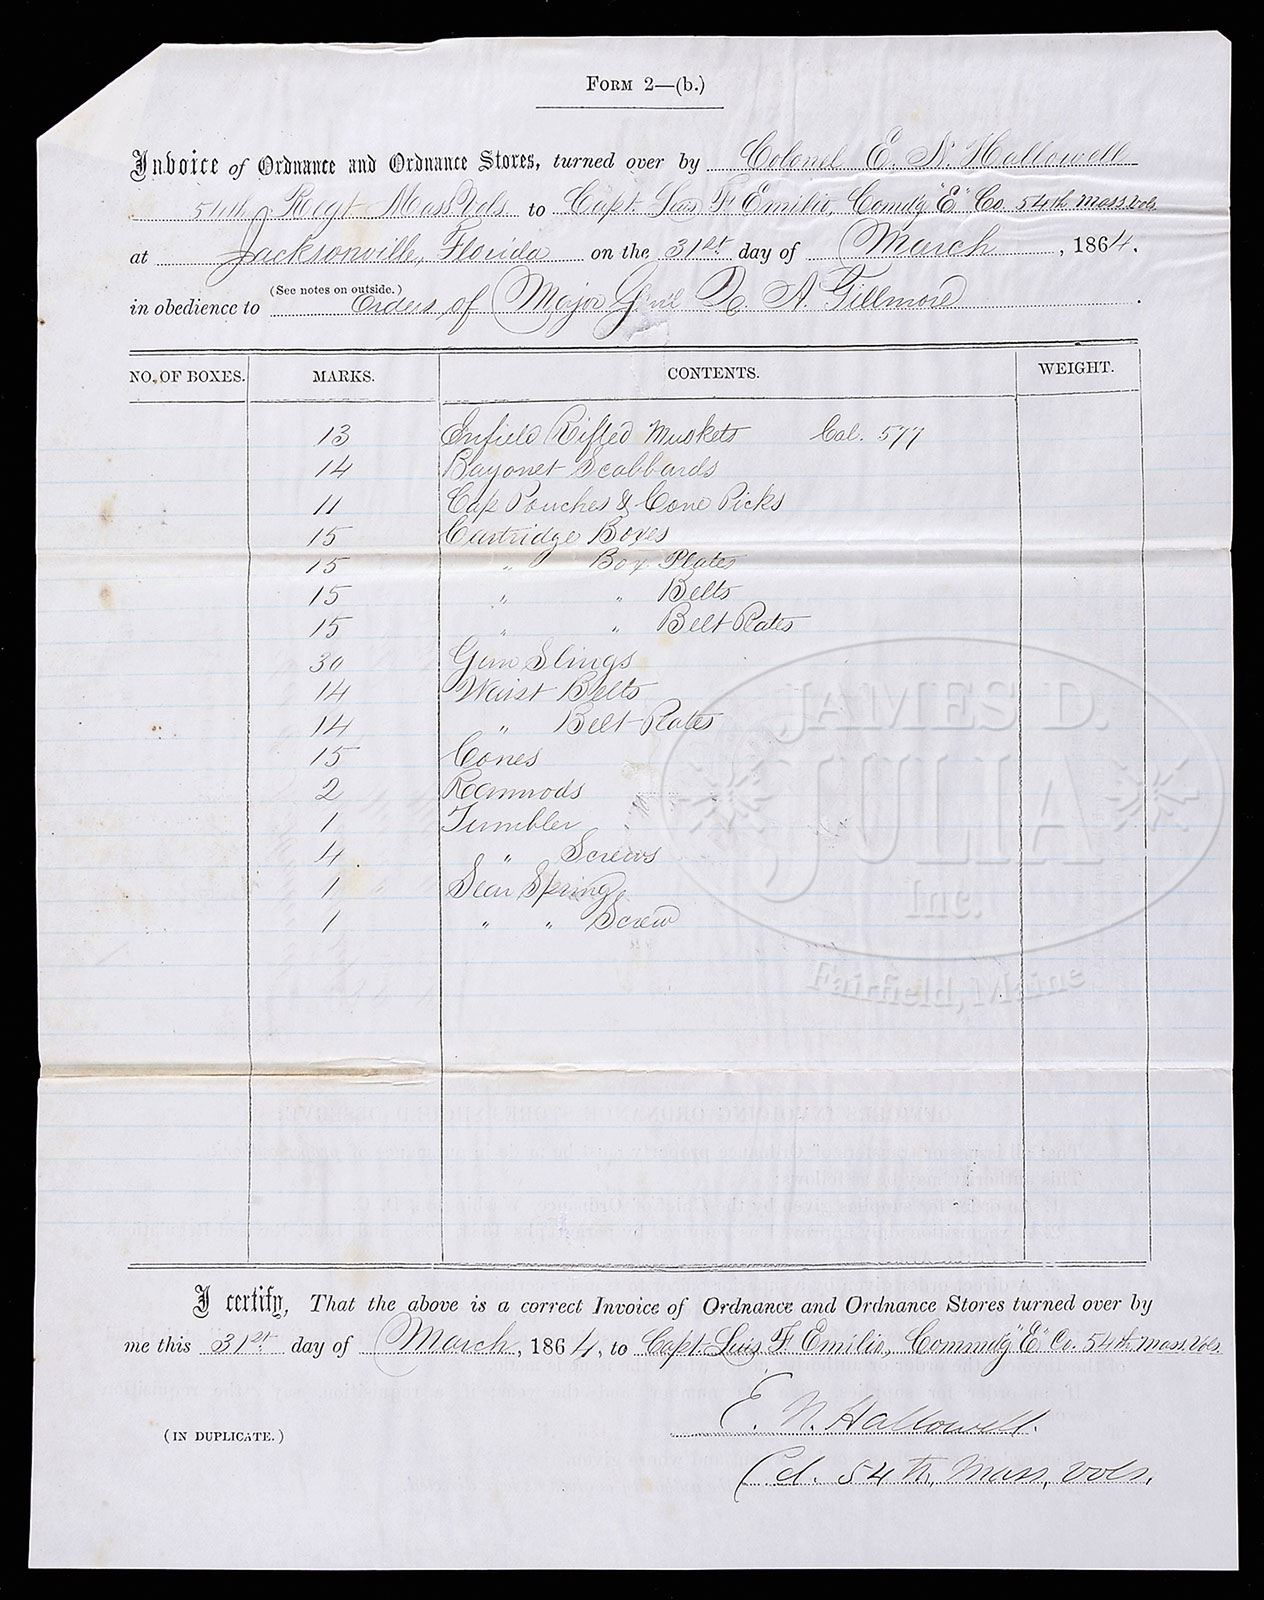 FORM 2—(b.)
Invoice of Ordnance and Ordnance Stores, turned over by Colonel E. N. Hallowell
54th Regt Mass Vols to Capt. Luis F Emilio, Comdg "E" Co. 54th Mass. Vols
at Jacksonville, Florida on the 31st day of March, 1864.
(See notes on outside.)
in obedience to Orders of Major Genl Q. A. Gillmore.
NO. OF BOXES. MARKS. CONTENTS. WEIGHT.
13 Enfield Rifled Muskets Cal. 577
14 Bayonet Scabbards
11 Cap Pouches & Cone Picks
15 Cartridge Boxes
15 " Box Plates
15 " " Belts
15 " " Belt Plates
30 Gun Slings
14 Waist Belts
14 " Belt Plates
15 Cones
2 Ramrods
1 Tumbler
4 " Screws
1 Sear Spring
1 " " Screw
JAMES D.
JULIA
Inc.
Fairfield, Maine
I certify, That the above is a correct Invoice of Ordnance and Ordnance Stores turned over by
me this 31st day of March, 1864, to Capt. Luis F Emilio, Commdg "E" Co. 54th Mass. Vols.
E. N. Hallowell.
(IN DUPLICATE.)
Col. 54th, Mass, Vols.